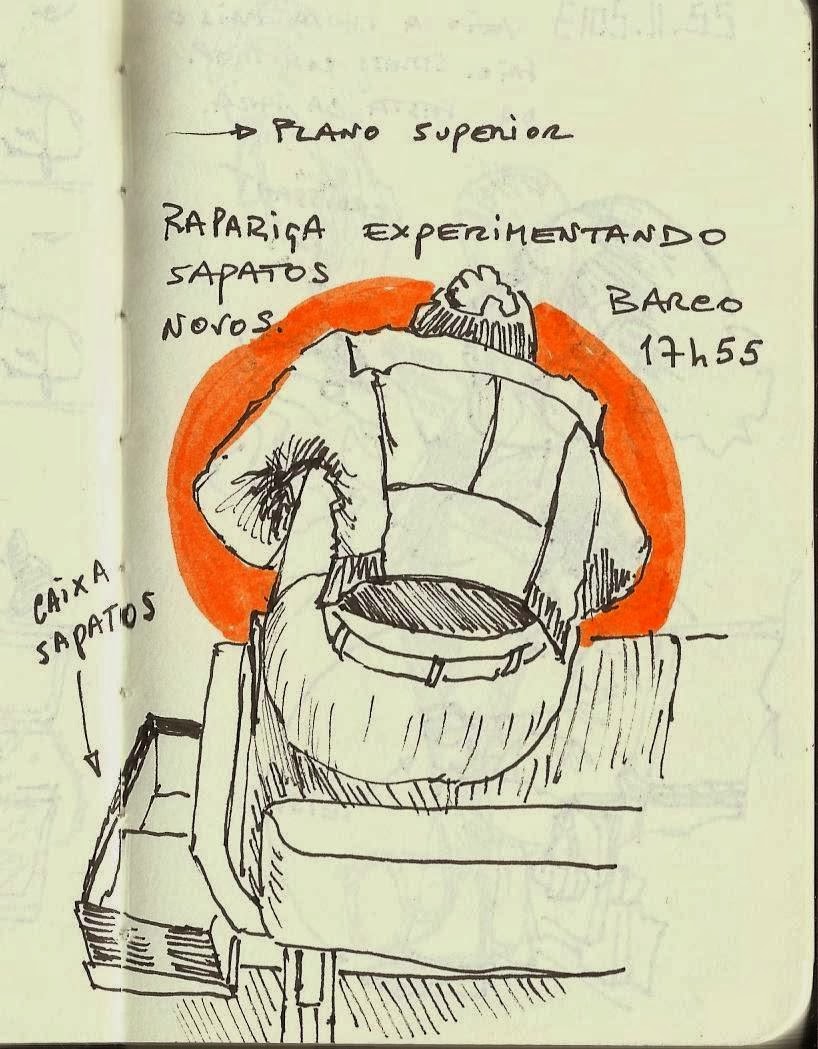 → PLANO SUPERIOR
RAPARIGA EXPERIMENTANDO
SAPATOS
NOVOS.
BARCO
17h55
CAIXA
SAPATOS